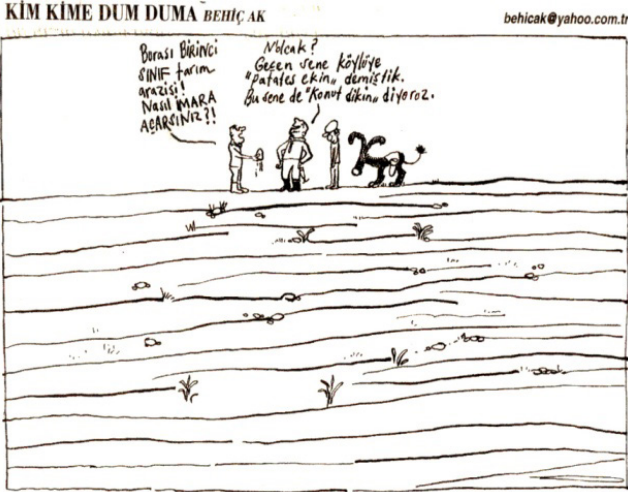 KİM KİME DUM DUMA BEHİÇ AK
behicak@yahoo.com.tr
Borası BİRİNCİ
SINIF tarım
arazisi!
Nasıl İMARA
AÇARSINIZ?!
N'olcak?
Geçen sene köylüye
"patates ekin" demiştik.
Bu sene de "Konut dikin" diyoruz.